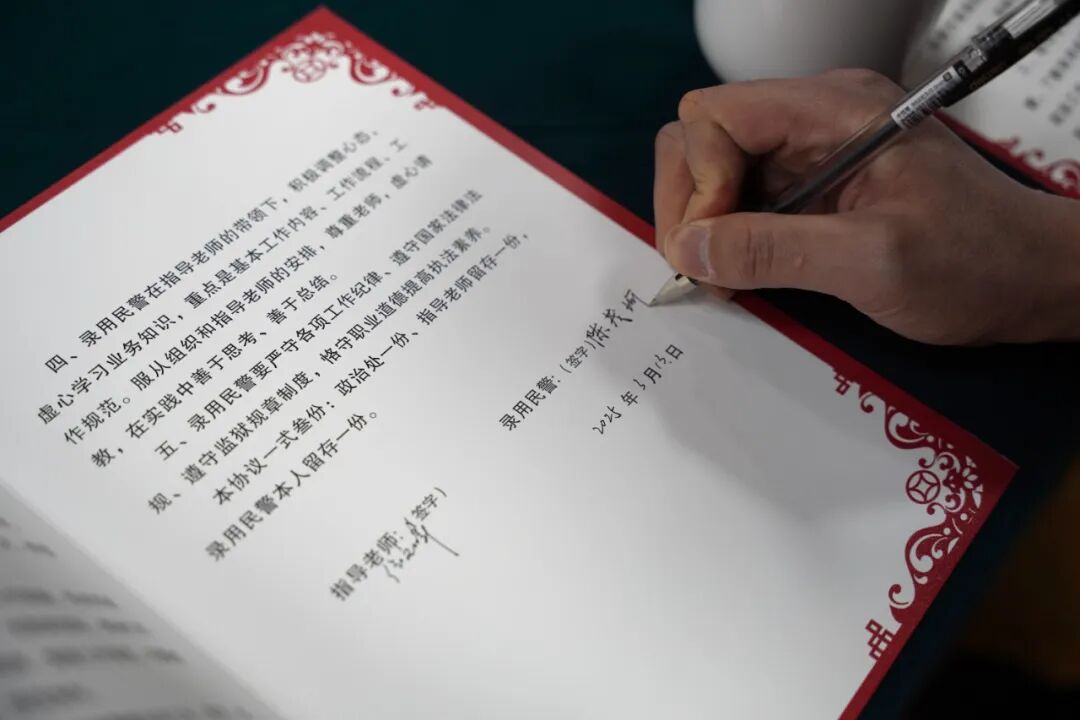 四、录用民警在指导老师的带领下，积极调整心态，
虚心学习业务知识，重点是基本工作内容、工作流程、工
作规范。服从组织和指导老师的安排，尊重老师，虚心请
教，在实践中善于思考、善于总结。
五、录用民警要严守各项工作纪律、遵守国家法律法
规、遵守监狱规章制度，恪守职业道德提高执法素养。
本协议一式叁份：政治处一份、指导老师留存一份，
录用民警本人留存一份。
指导老师：（签字）
录用民警：（签字）
2025年3月13日